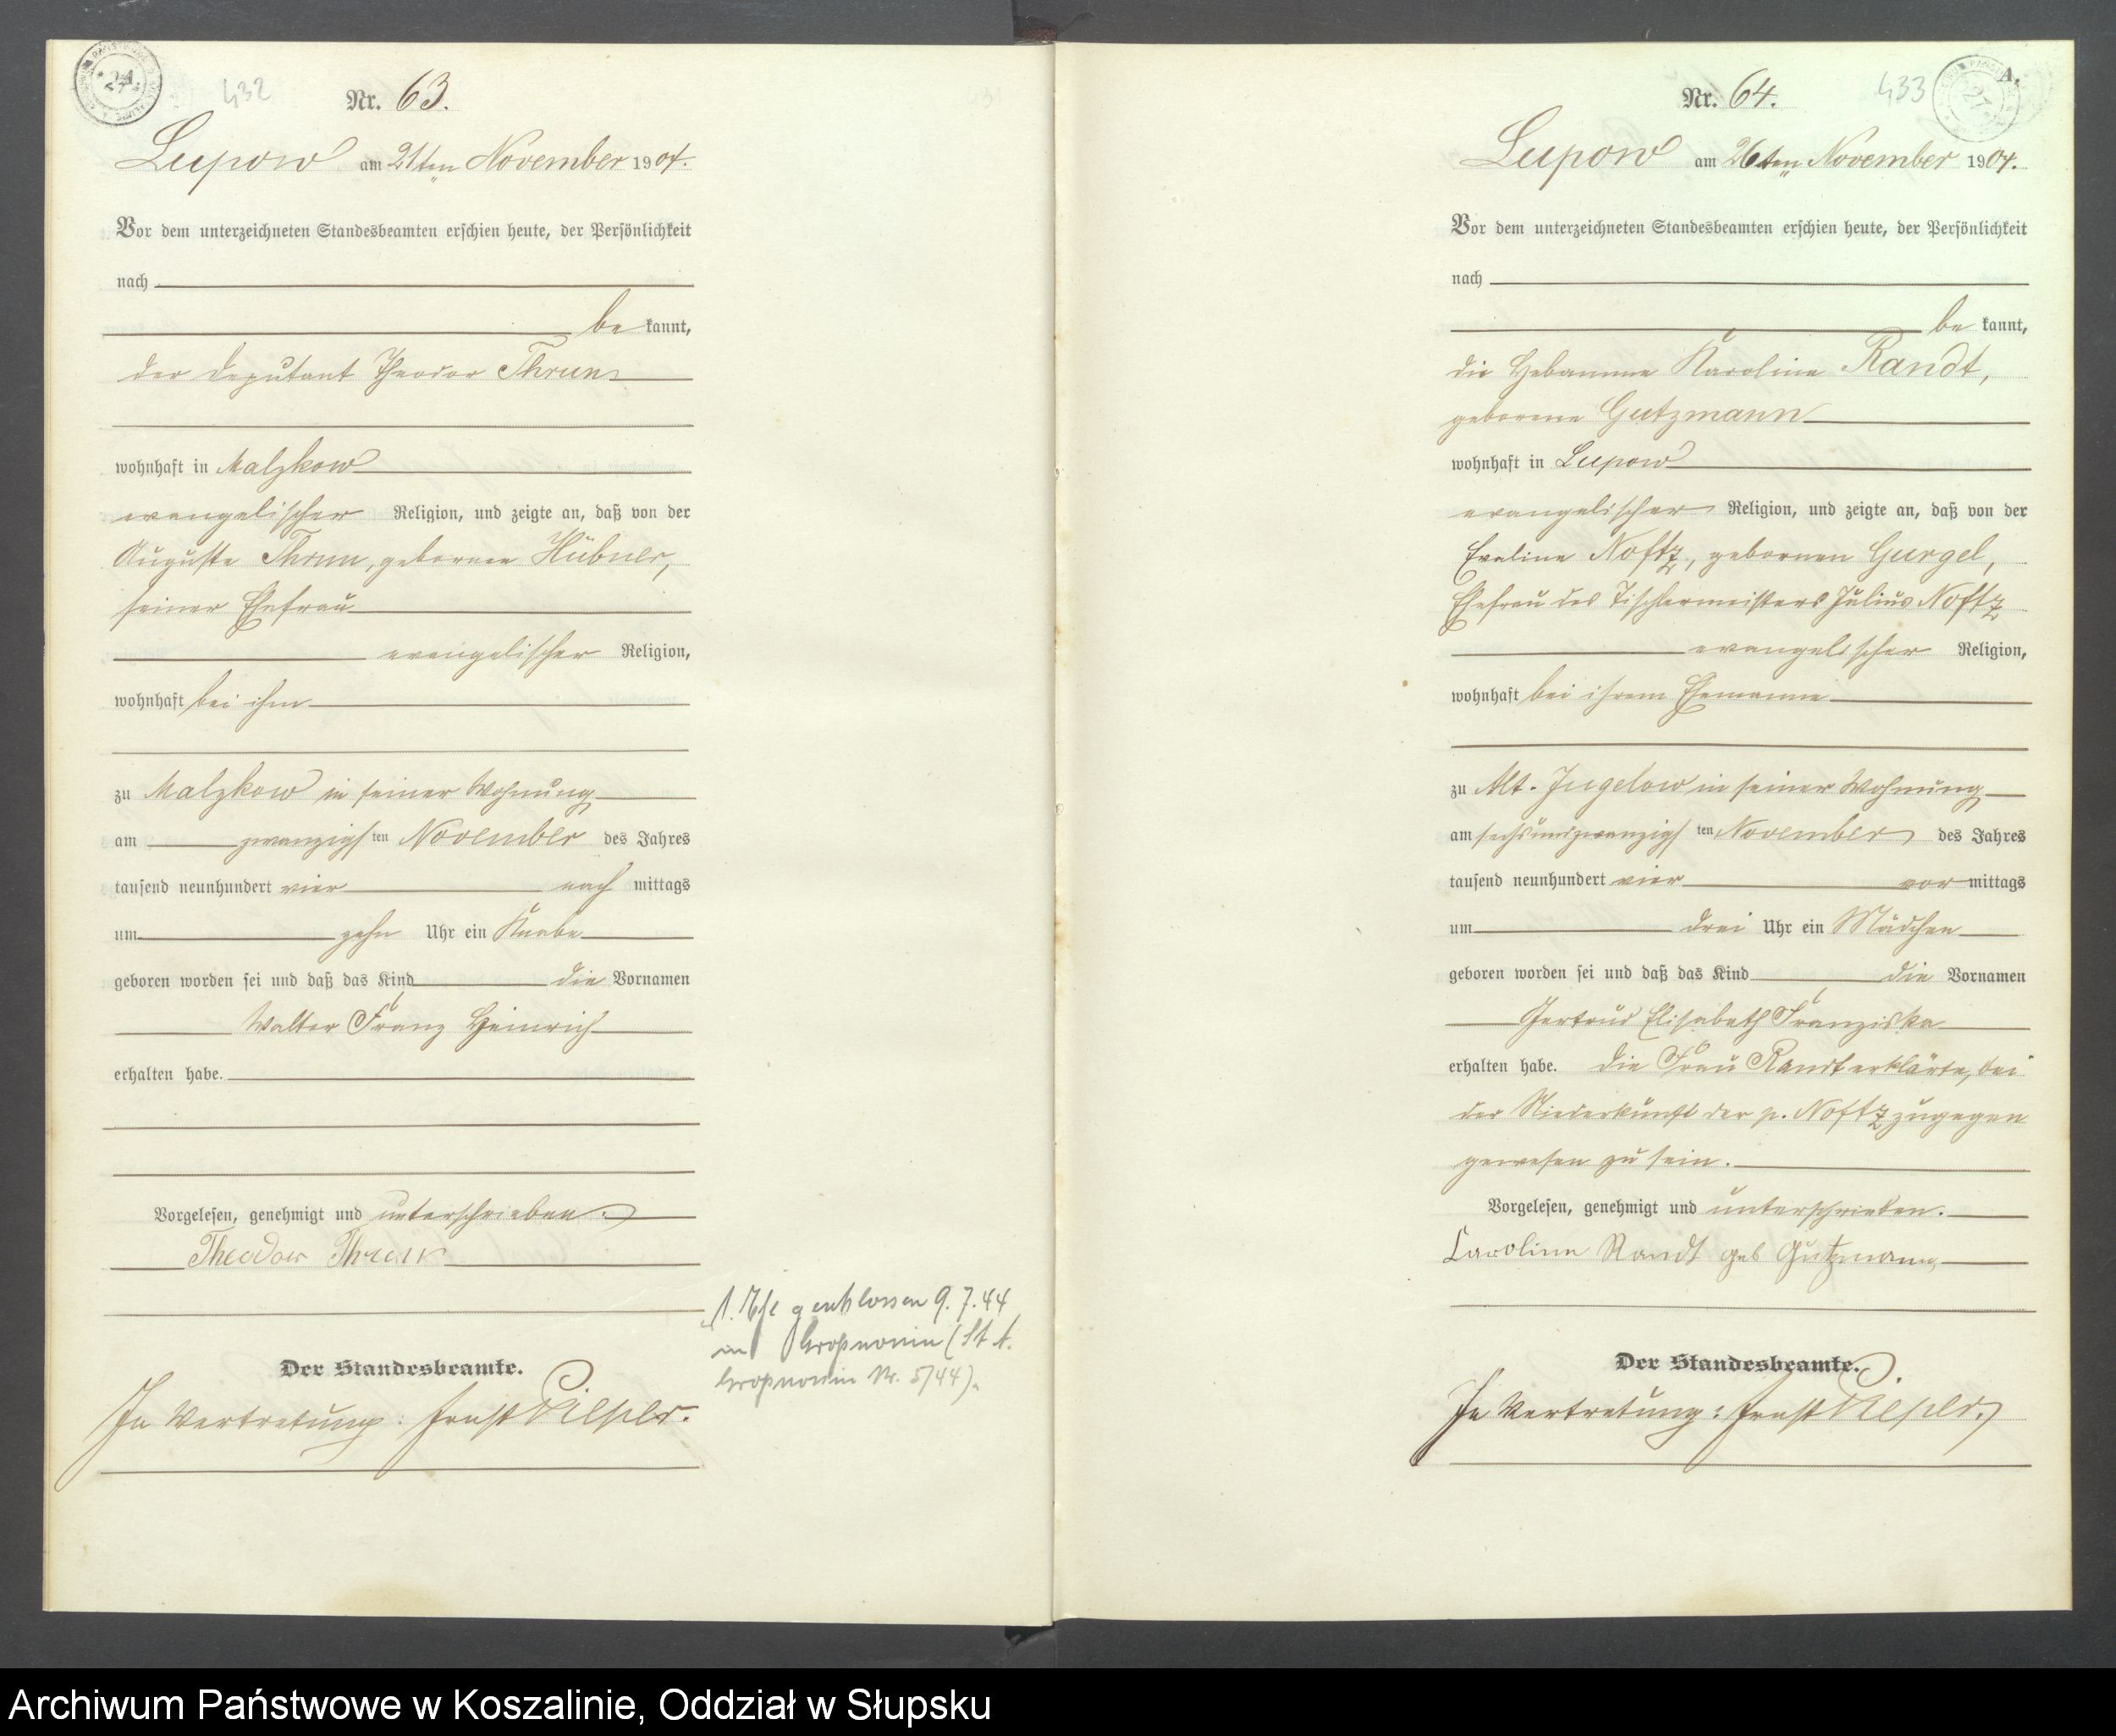 432
Nr. 63.
Lupow am 21ten November 1904.
Vor dem unterzeichneten Standesbeamten erschien heute, der Persönlichkeit
nach
be kannt,
der Deputant Theodor Thrun
wohnhaft in Malzkow
evangelischer Religion, und zeigte an, daß von der
Auguste Thrun, geborenen Hübner,
seiner Ehefrau
evangelischer Religion,
wohnhaft bei ihm
zu Malzkow in seiner Wohnung
am zwanzigsten November des Jahres
tausend neunhundert vier nach mittags
um zehn Uhr ein Knabe
geboren worden sei und daß das Kind die Vornamen
Walter Franz Heinrich
erhalten habe.
Vorgelesen, genehmigt und unterschrieben.
Theodor Thrun
Der Standesbeamte.
In Vertretung: Ernst Pieper.
1. Ehe geschlossen 9.7.44
in Großnossin (St. A.
Großnossin Nr. 5/44).
433
A.
Nr. 64.
Lupow am 26ten November 1904.
Vor dem unterzeichneten Standesbeamten erschien heute, der Persönlichkeit
nach
be kannt,
die Hebamme Karoline Randt,
geborene Gutzmann
wohnhaft in Lupow
evangelischer Religion, und zeigte an, daß von der
Eveline Noftz, geborenen Gurgel,
Ehefrau des Tischlermeisters Julius Noftz
evangelischer Religion,
wohnhaft bei ihrem Ehemanne
zu Alt-Jugelow in seiner Wohnung
am sechsundzwanzigsten November des Jahres
tausend neunhundert vier vor mittags
um drei Uhr ein Mädchen
geboren worden sei und daß das Kind die Vornamen
Gertrud Elisabeth Franziska
erhalten habe. Die Frau Randt erklärte, bei
der Niederkunft der p. Noftz zugegen
gewesen zu sein.
Vorgelesen, genehmigt und unterschrieben.
Caroline Randt geb Gutzmann
Der Standesbeamte.
In Vertretung: Ernst Pieper.
Archiwum Państwowe w Koszalinie, Oddział w Słupsku